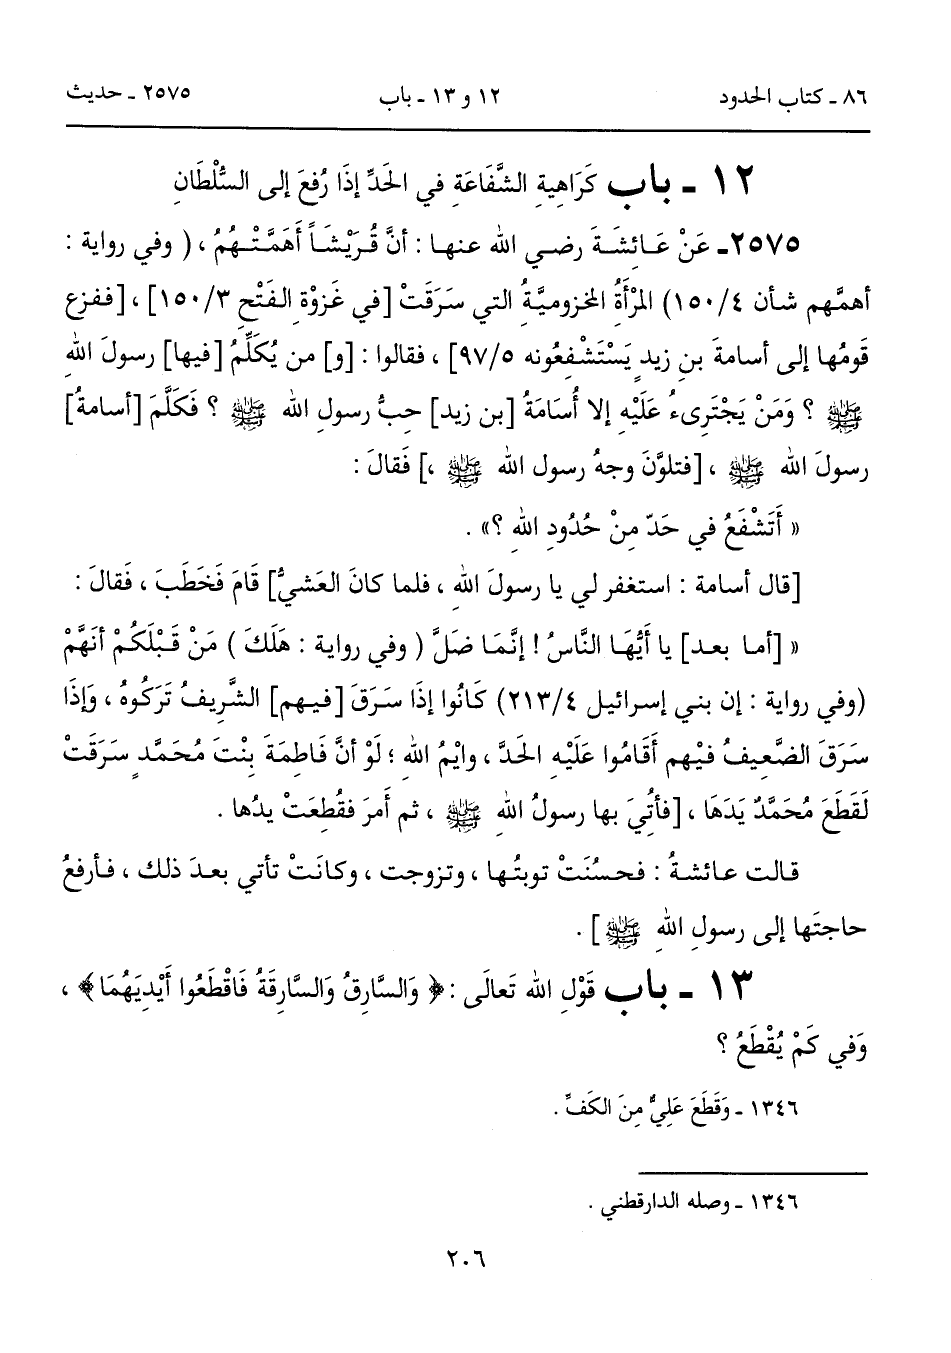 ٨٦ ـ كتاب الحدود ١٢ و ١٣ ـ باب ٢٥٧٥ ـ حديث
١٢ ـ باب كَرَاهِيةِ الشَّفَاعَة في الحَدِّ إذَا رُفِعَ إلى السُّلْطَانِ
٢٥٧٥ـ عَنْ عَائِشَةَ رضي الله عنها : أنَّ قُرَيْشَاً أهَمَّتْهُمُ ، ( وفي رواية :
أهمَّهم شأن ١٥٠/٤) المْرْأَةُ المخزوميَّةُ التي سَرَقَتْ [في غَزوْة الفَتْح ١٥٠/٣] ، [ففزع
قَومُها إلى أسامةَ بنِ زيدٍ يَسْتَشْفِعُونه ٩٧/٥] ، فقالوا : [و] من يُكَلِّمُ [فيها] رسولَ اللهِ
ﷺ ؟ وَمَنْ يَجْتَرِىءُ عَلَيْهِ إلا أُسَامَةُ [بن زيد] حِبُّ رسولِ الله ﷺ ؟ فَكَلَّمَ [أسامةُ]
رسولَ الله ﷺ ، [فتلوَّنَ وجهُ رسول الله ﷺ ،] فَقالَ :
« أَتَشْفَعُ في حَدّ مِنْ حُدُودِ اللهِ ؟» .
[قال أسامة : استغفر لي يا رسولَ اللهِ ، فلما كانَ العَشيُّ] قَامَ فَخَطَبَ ، فَقالَ :
« [أما بعد] يا أَيُّهَا النَّاسُ ! إنَّمَا ضَلَّ ( وفي رواية : هَلَكَ ) مَنْ قَبْلَكُمْ أنَهَّمْ
(وفي رواية : إن بني إسرائيل ٢١٣/٤) كَانُوا إذَا سَرَقَ [فيهم] الشَّرِيفُ تَرَكُوهُ ، وَإذَا
سَرَقَ الضَّعِيفُ فيْهِم أقَامُوا عَلَيْهِ الحَدَّ ، وايْمُ اللهِ ؛ لَوْ أنَّ فَاطِمَةَ بِنْتَ مُحَمَّدٍ سَرَقَتْ
لَقَطَعَ مُحَمَّدٌ يَدَهَا ، [فأُتيَ بها رسولُ اللهِ ﷺ ، ثم أَمرَ فقُطِعَتْ يدُها .
قالت عائشةُ : فحسُنَتْ توبتُها ، وتزوجت ، وكانَتْ تأتي بعدَ ذلك ، فأرفعُ
حاجتَها إلى رسولِ اللهِ ﷺ] .
١٣ ـ باب قَوْلِ الله تَعالَى :﴿ وَالسَّارِقُ وَالسَّارِقَةُ فَاقْطَعُوا أَيْدِيَهُمَا﴾ ،
وَفي كَمْ يُقْطَعُ ؟
١٣٤٦ ـ وَقَطَعَ عَلِيٌّ مِنَ الكَفِّ .
١٣٤٦ ـ وصله الدارقطني .
٢٠٦